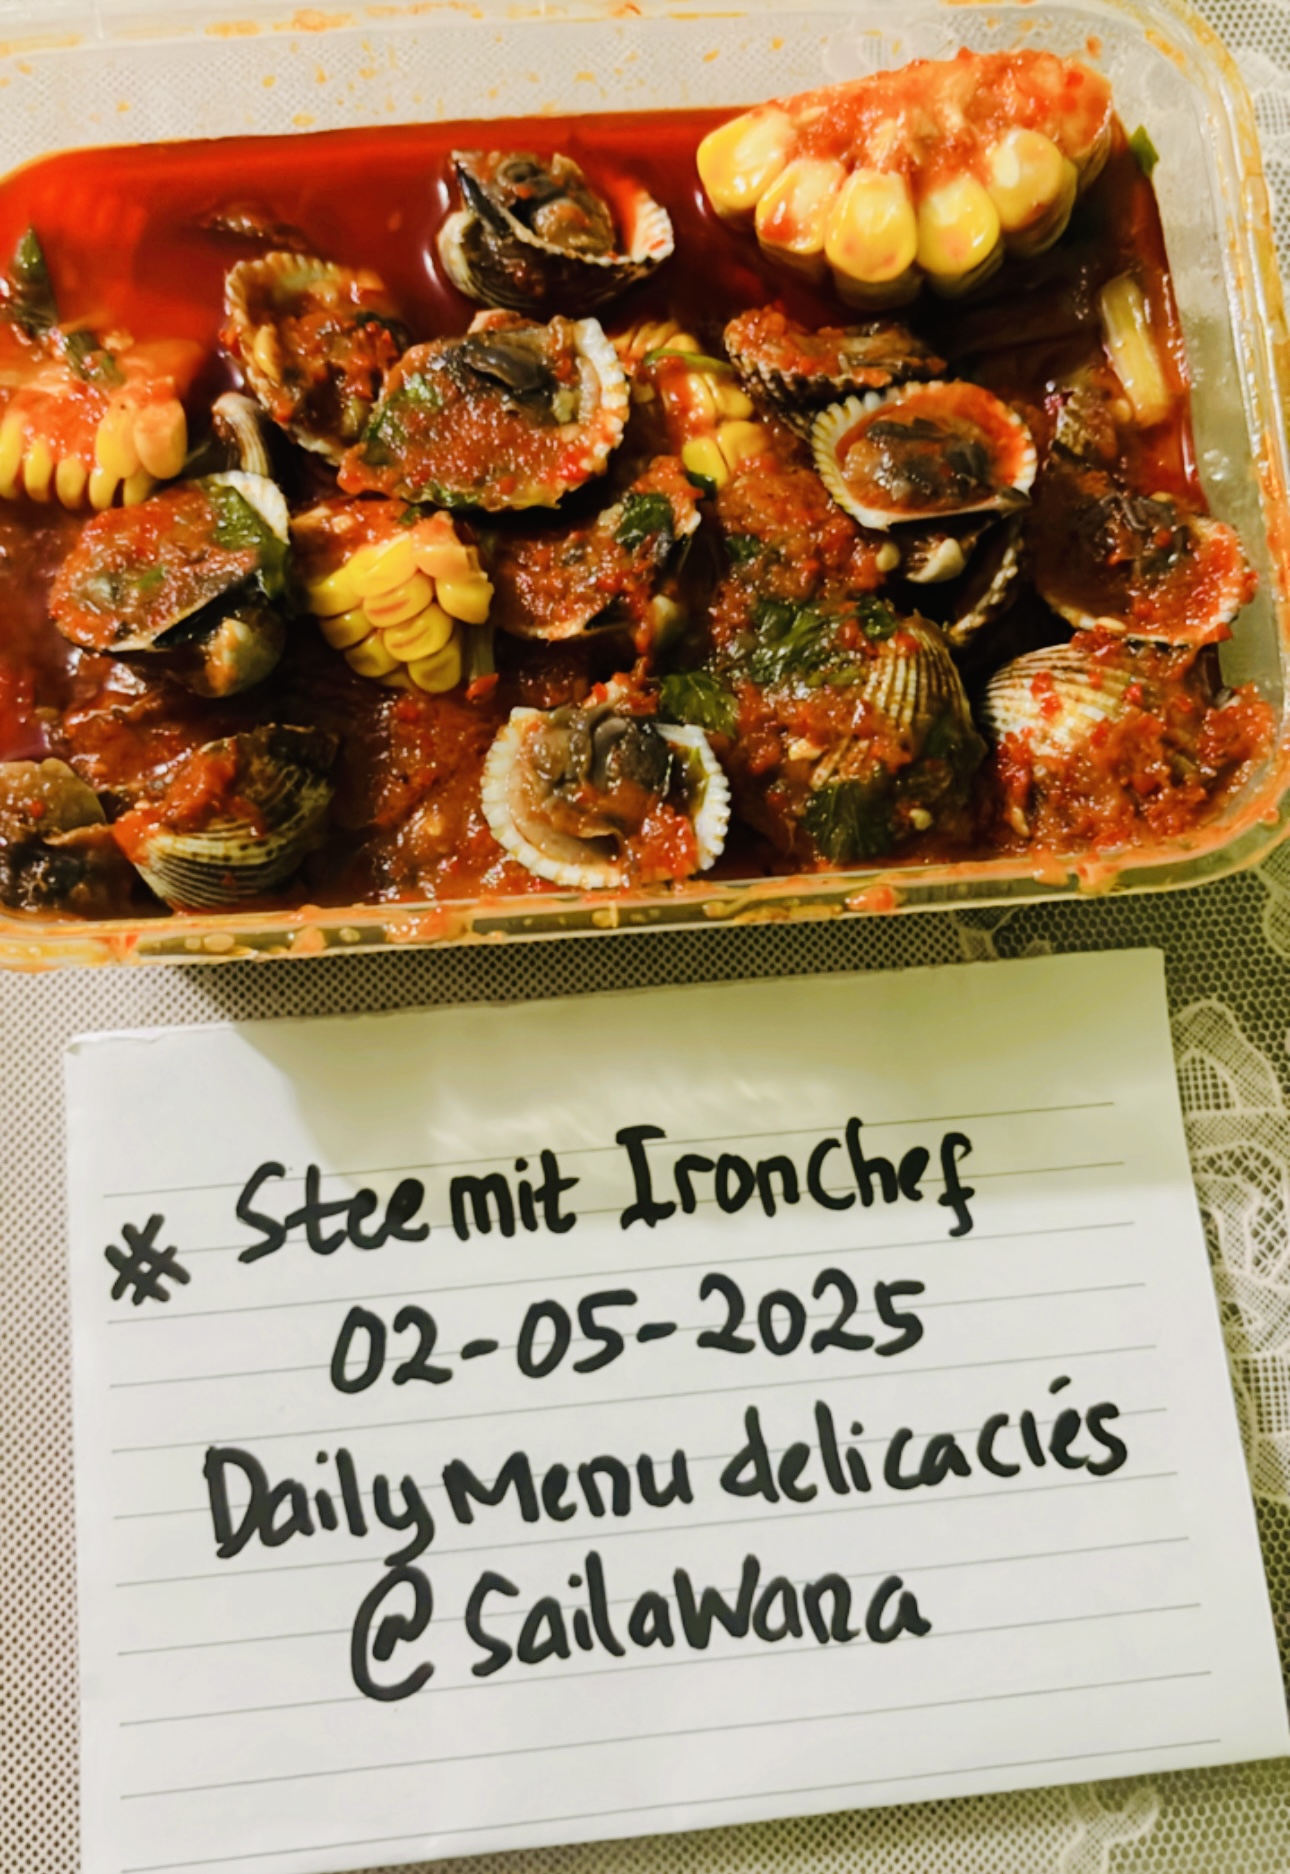 # Steemit IronChef
02-05-2025
Daily Menu delicaciés
@Sailawana